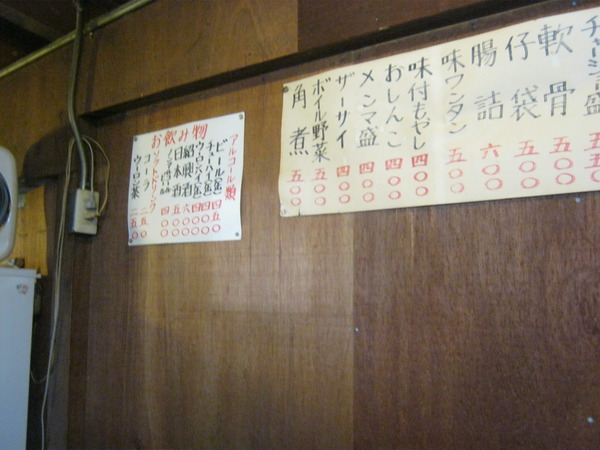 チャーシュー盛 五五〇
軟骨 五五〇
仔袋 五五〇
腸詰 六〇〇
味ワンタン 五〇〇
味付もやし 四〇〇
おしんこ 四〇〇
メンマ盛 四〇〇
ザーサイ 四〇〇
ボイル野菜 五〇〇
角煮 五〇〇
お飲み物
アルコール類
ビール
紹興酒 六〇〇
日本酒 五〇〇
ソフトドリンク
コーラ 二五〇
ウーロン茶 二五〇